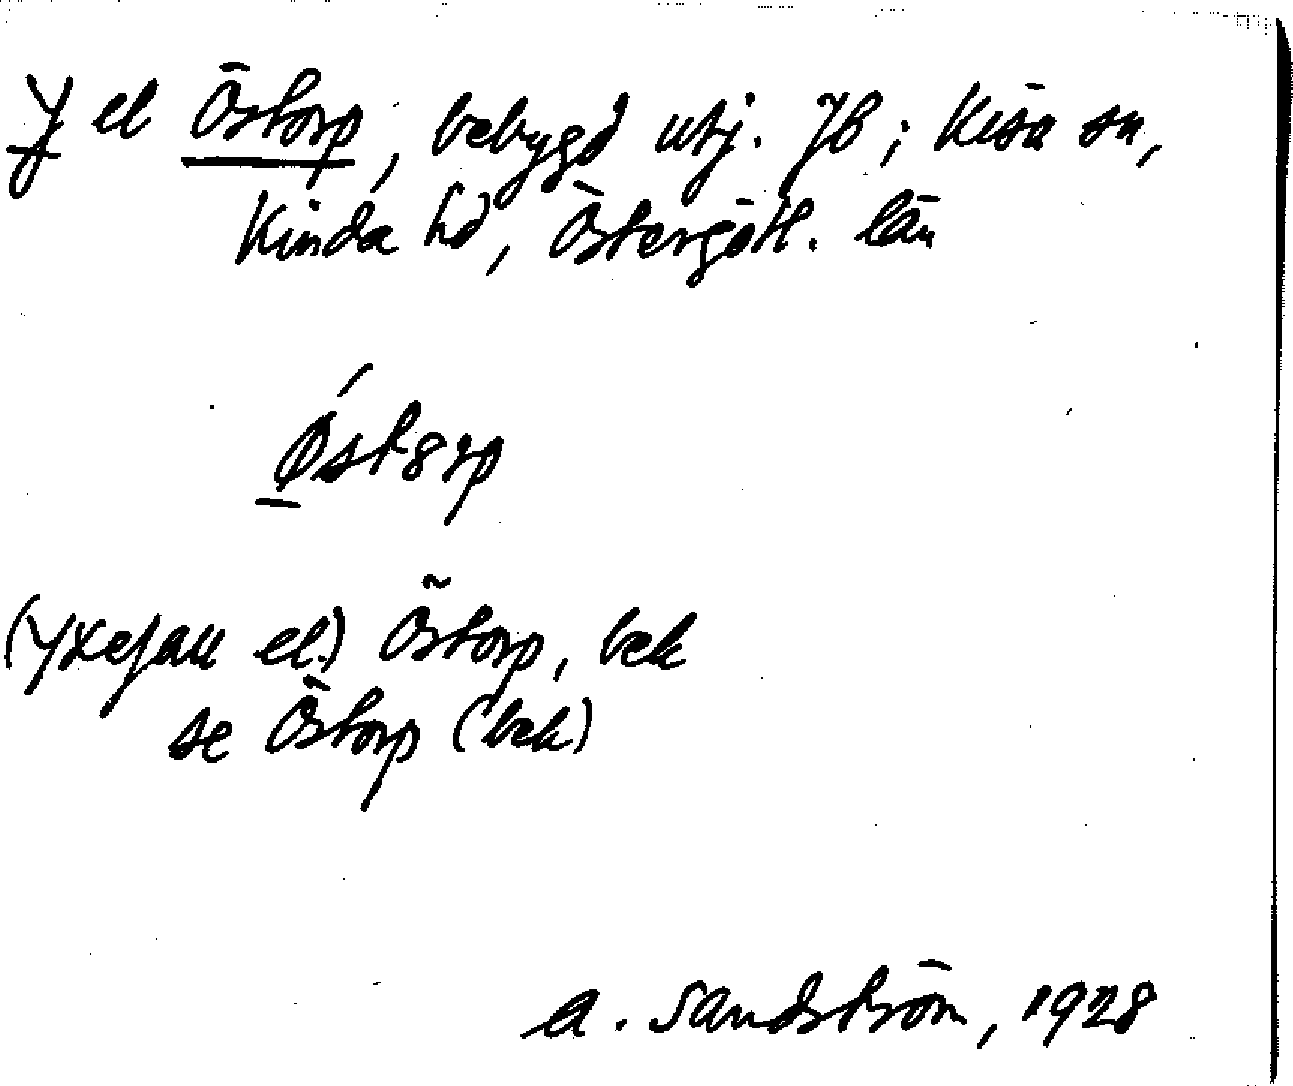 Y el Östorp, bebygd utj. JB; Kisa sn,
Kinda hd, Östergötl. län
Østorp
(Yxefall el.) Östorp, bek
se Östorp (bek)
A. Sandström, 1928